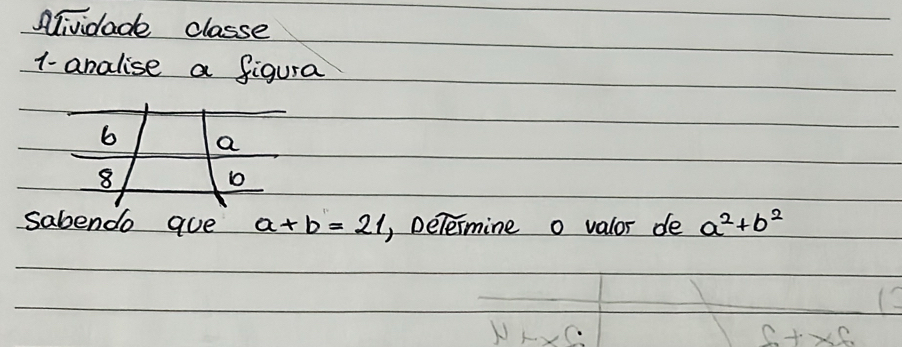 Atividade classe
1-analise a figura
b a
8 b
sabendo que a+b = 21, Determine o valor de a²+b²